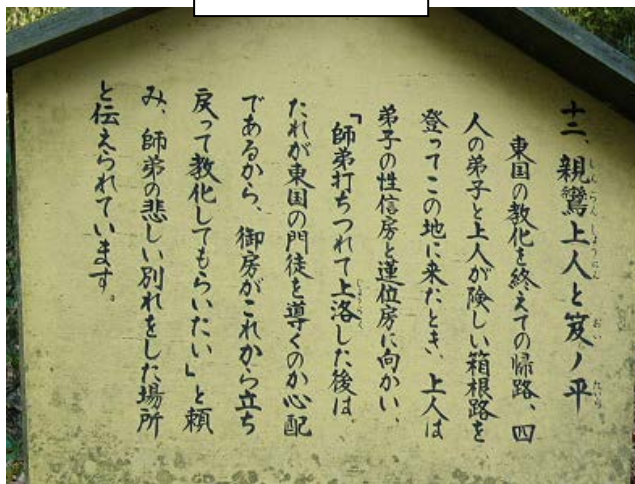 十三、親鸞上人と笈ノ平
東国の教化を終えての帰路、四
人の弟子と上人が険しい箱根路を
登ってこの地に来たとき、上人は
弟子の性信房と蓮位房に向かい、
「師弟打ちつれて上洛した後は、
たれが東国の門徒を導くのか心配
であるから、御房がこれから立ち
戻って教化してもらいたい」と頼
み、師弟の悲しい別れをした場所
と伝えられています。